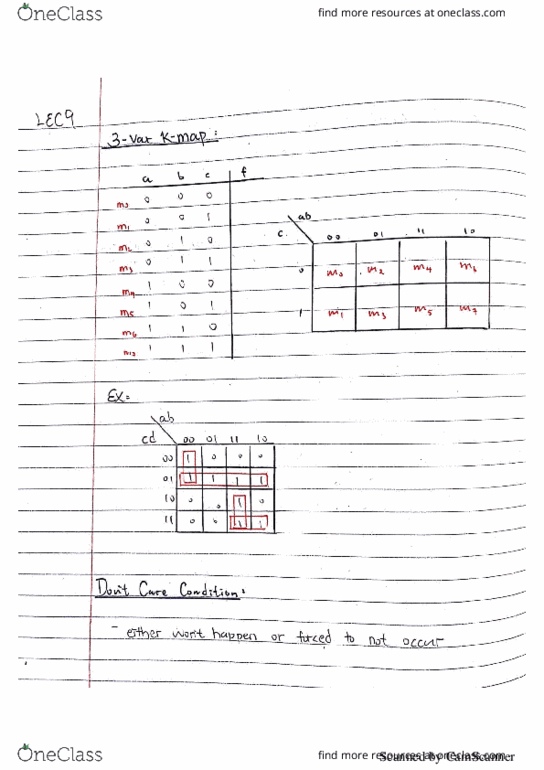 OneClass
find more resources at oneclass.com
LEC9
3-Var K-map:
a b c f
m0 0 0 0
m1 0 0 1
m2 0 1 0
m3 0 1 1
m4 1 0 0
m5 1 0 1
m6 1 1 0
1 1 1
ab
c 00 01 11 10
0 m0 m2 m4 m6
1 m1 m3 m5 m7
Ex:
ab
cd 00 01 11 10
00 1 0 0 0
01 1 1 1 1
10 0 . 1 0
11 0 0 1 1
Don't Care Condition:
- either won't happen or forced to not occur
OneClass
find more resources at oneclass.com
Scanned by CamScanner